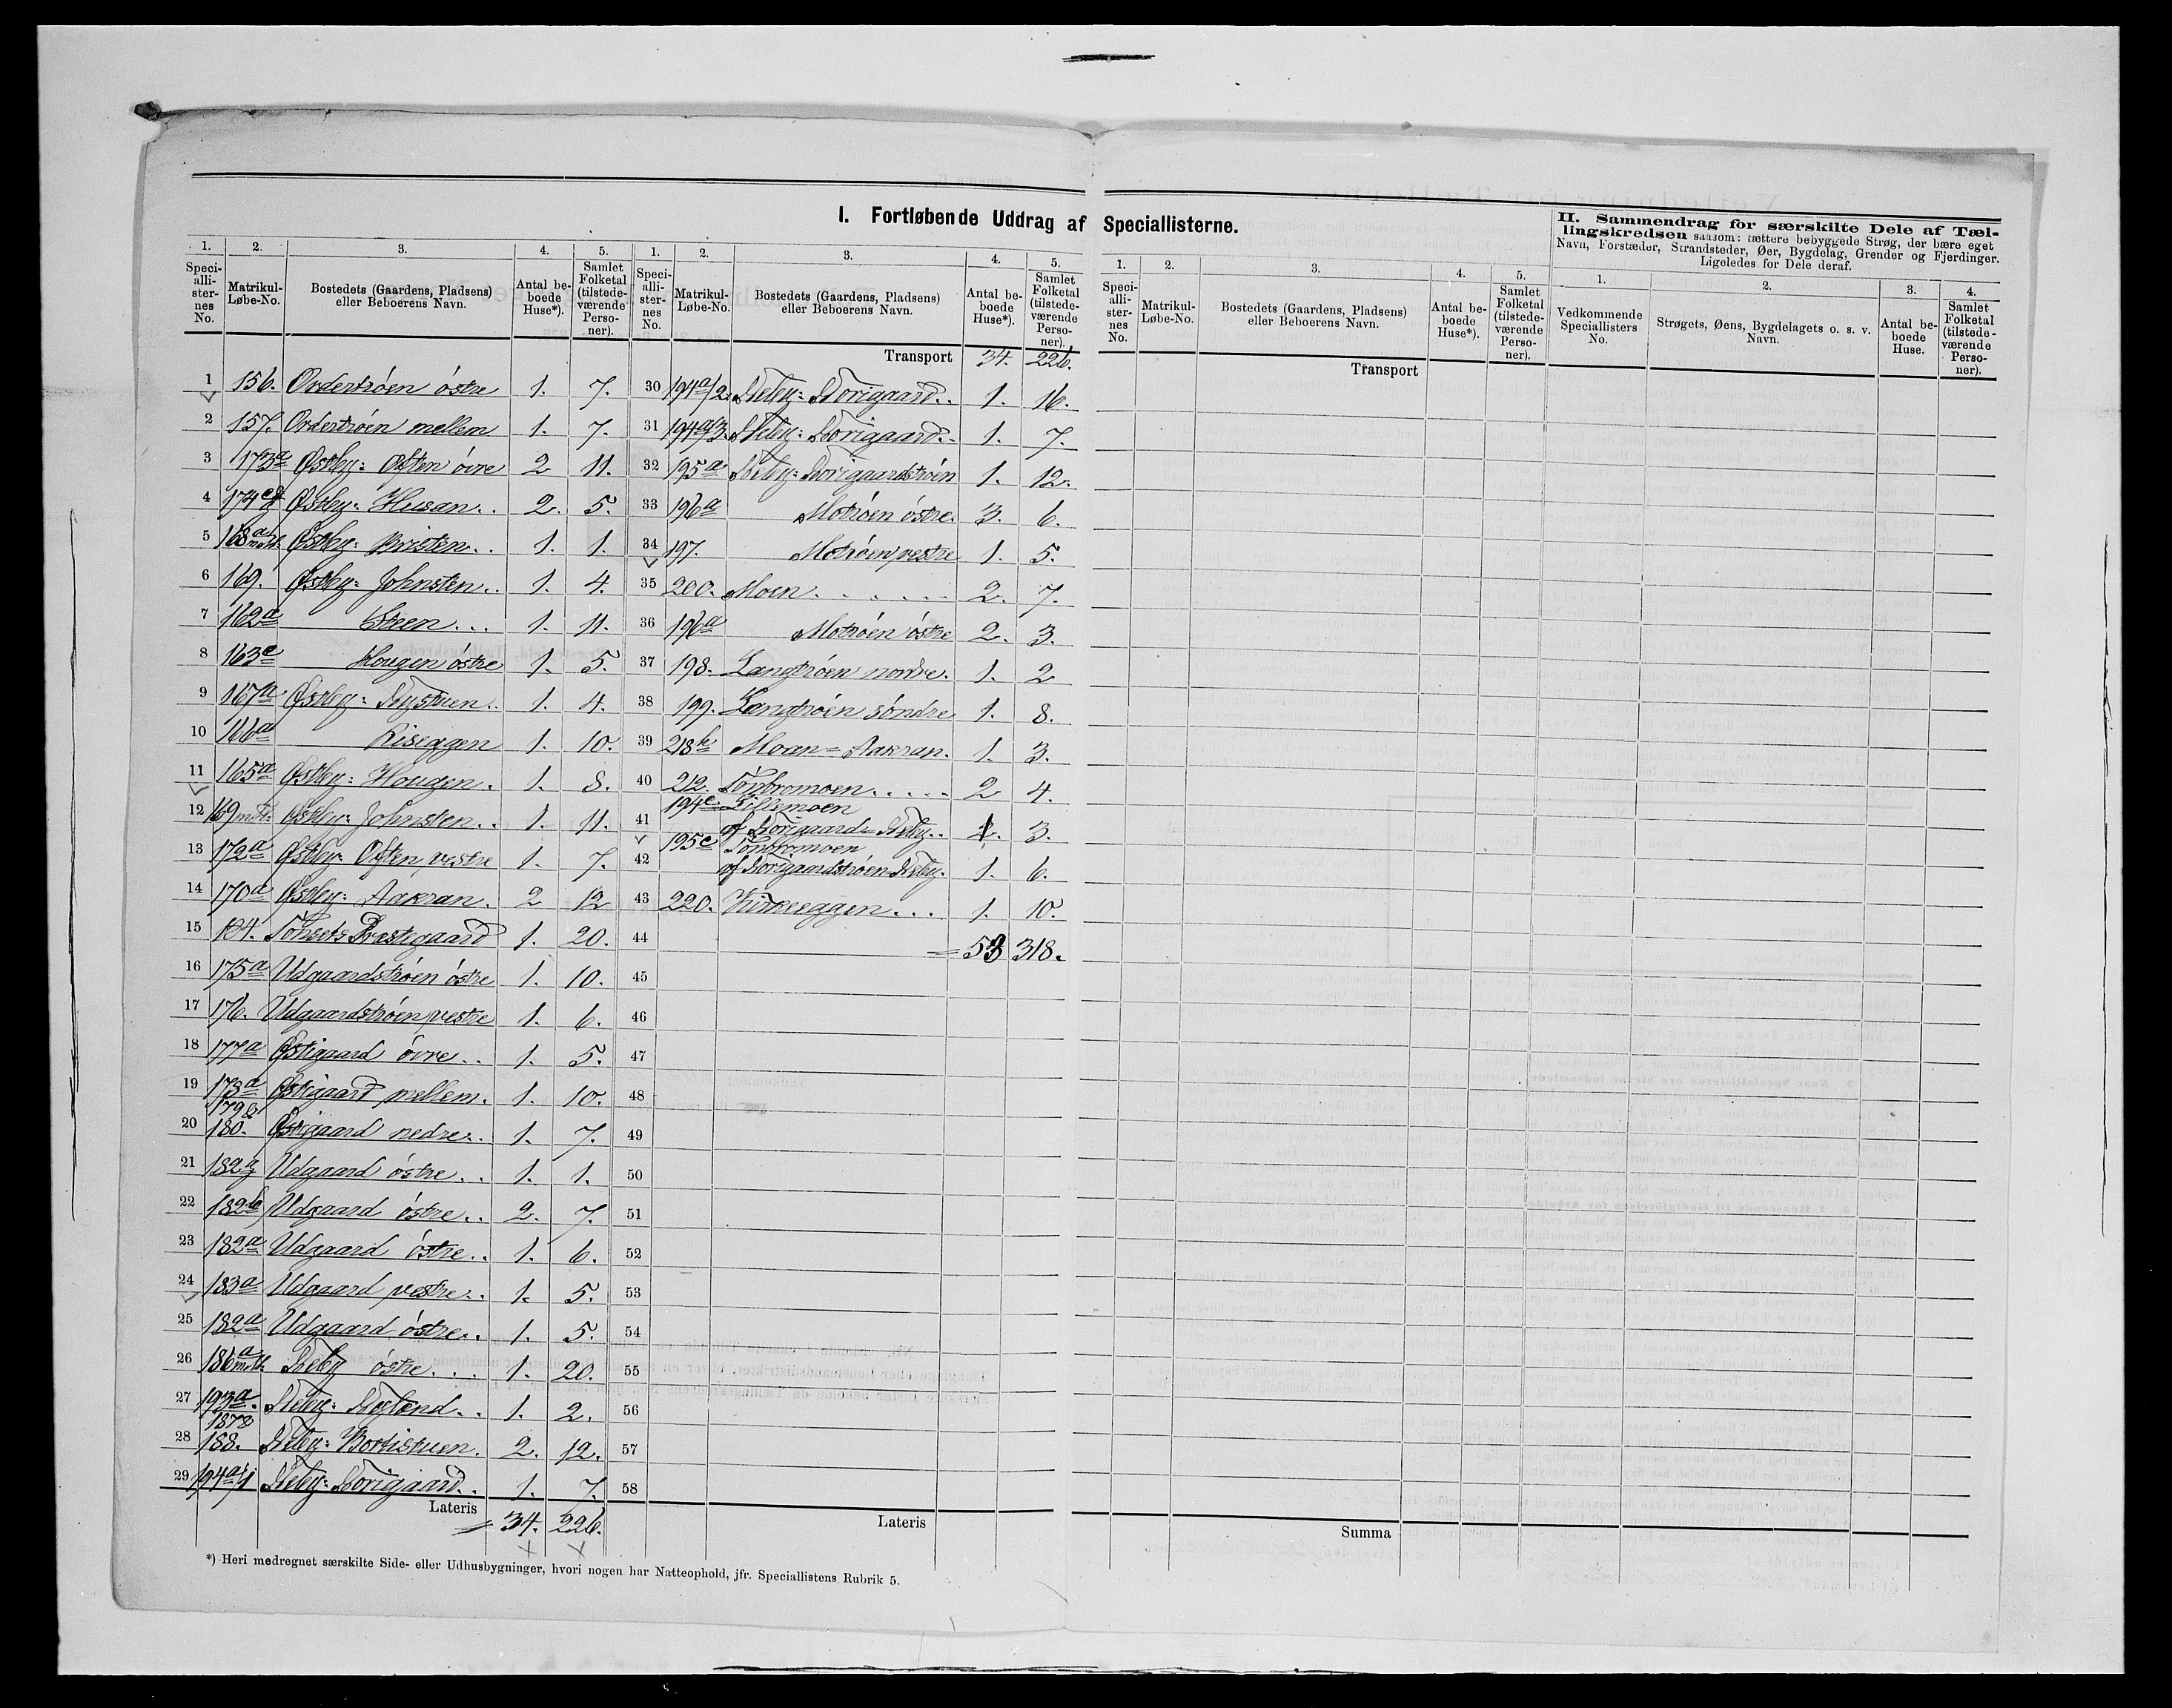 I. Fortløbende Uddrag af Speciallisterne.
1. 2. 3. 4. 5.
Speciallisternes No. Matrikul-Løbe-No. Bostedets (Gaardens, Pladsens) eller Beboerens Navn. Antal beboede Huse*). Samlet Folketal (tilstedeværende Personer).
1 156. Ordertrøen østre 1. 7.
2 157. Ordertrøen mellem 1. 7.
3 173a Østby: Often øvre 2 11.
4 174 Østby: Husan.. 2. 5.
5 168a Østby: 1. 1.
6 169. Østby: Johnsten.. 1. 4.
7 162a Steen... 1. 11.
8 163e Hougen østre 1. 5.
9 167a Østby: Nystuen. 1. 4.
10 166a Riseggen 1. 10.
11 165a Østby: Hougen. 1. 8.
12 169 Østby: Johnsten.. 1. 11.
13 172a Østby: Often vestre 1. 7.
14 170a Østby: Aakran. 2 12
15 184. Tønsets Præstegaard 1. 20.
16 175a Udgaardstrøen østre 1. 10.
17 176. Udgaardstrøen vestre 1. 6.
18 177a Østigaard øvre.. 1. 5.
19 178a Østigaard mellem. 1. 10.
20 179 & 180. Østigaard nedre.. 1. 7.
21 182g Udgaard østre.. 1. 1.
22 182b Udgaard østre.. 2. 7.
23 182a Udgaard østre.. 1. 6.
24 183a Udgaard vestre.. 1. 5.
25 182a Udgaard østre.. 1. 5.
26 186a Neby østre.... 1. 20.
27 193a. Neby: 1. 2.
28 187 & 188. Neby: Bortistuen. 2. 12.
29 194a/1 Neby: Norigaard.. 1. 7.
Lateris = 34. 226.
*) Heri medregnet særskilte Side- eller Udhusbygninger, hvori nogen har Natteophold, jfr. Speciallistens Rubrik 5.
1. 2. 3. 4. 5.
Speciallisternes No. Matrikul-Løbe-No. Bostedets (Gaardens, Pladsens) eller Beboerens Navn. Antal beboede Huse*). Samlet Folketal (tilstedeværende Personer).
Transport 34. 226.
30 194a/2. Neby: Norigaard.. 1. 16.
31 194a/3. Neby: Norigaard.. 1. 7.
32 195a Neby: Norigaardstrøen 1. 12.
33 196a Motrøen østre. 3. 6.
34 197. Motrøen vestre 1. 5.
35 200. Moen...... 2. 7.
36 196a Motrøen østre 2. 3.
37 198. Langtrøen nordre. 1. 2
38 199. Langtrøen søndre 1. 8.
39 218b Moan = Aakran. 1. 3.
40 212. Tønbromoen..... 2 4.
41 194c Lillemoen
af Norigaard = Neby.. 3.
42 195c Tønbromoen
af Norigaardstrøen Neby. 1. 6.
43 220. Kirkeeggen... 1. 10.
44 = 53 318.
45
46
47
48
49
50
51
52
53
54
55
56
57
58
Lateris
1. 2. 3. 4. 5.
Speciallisternes No. Matrikul-Løbe-No. Bostedets (Gaardens, Pladsens) eller Beboerens Navn. Antal beboede Huse*). Samlet Folketal (tilstedeværende Personer).
Transport
Summa
II. Sammendrag for særskilte Dele af Tællingskredsen saasom: tættere bebyggede Strøg, der bære eget
Navn, Forstæder, Strandsteder, Øer, Bygdelag, Grender og Fjerdinger.
Ligeledes for Dele deraf.
1. 2. 3. 4.
Vedkommende Speciallisters No. Strøgets, Øens, Bygdelagets o. s. v. Navn. Antal beboede Huse. Samlet Folketal (tilstedeværende Personer).